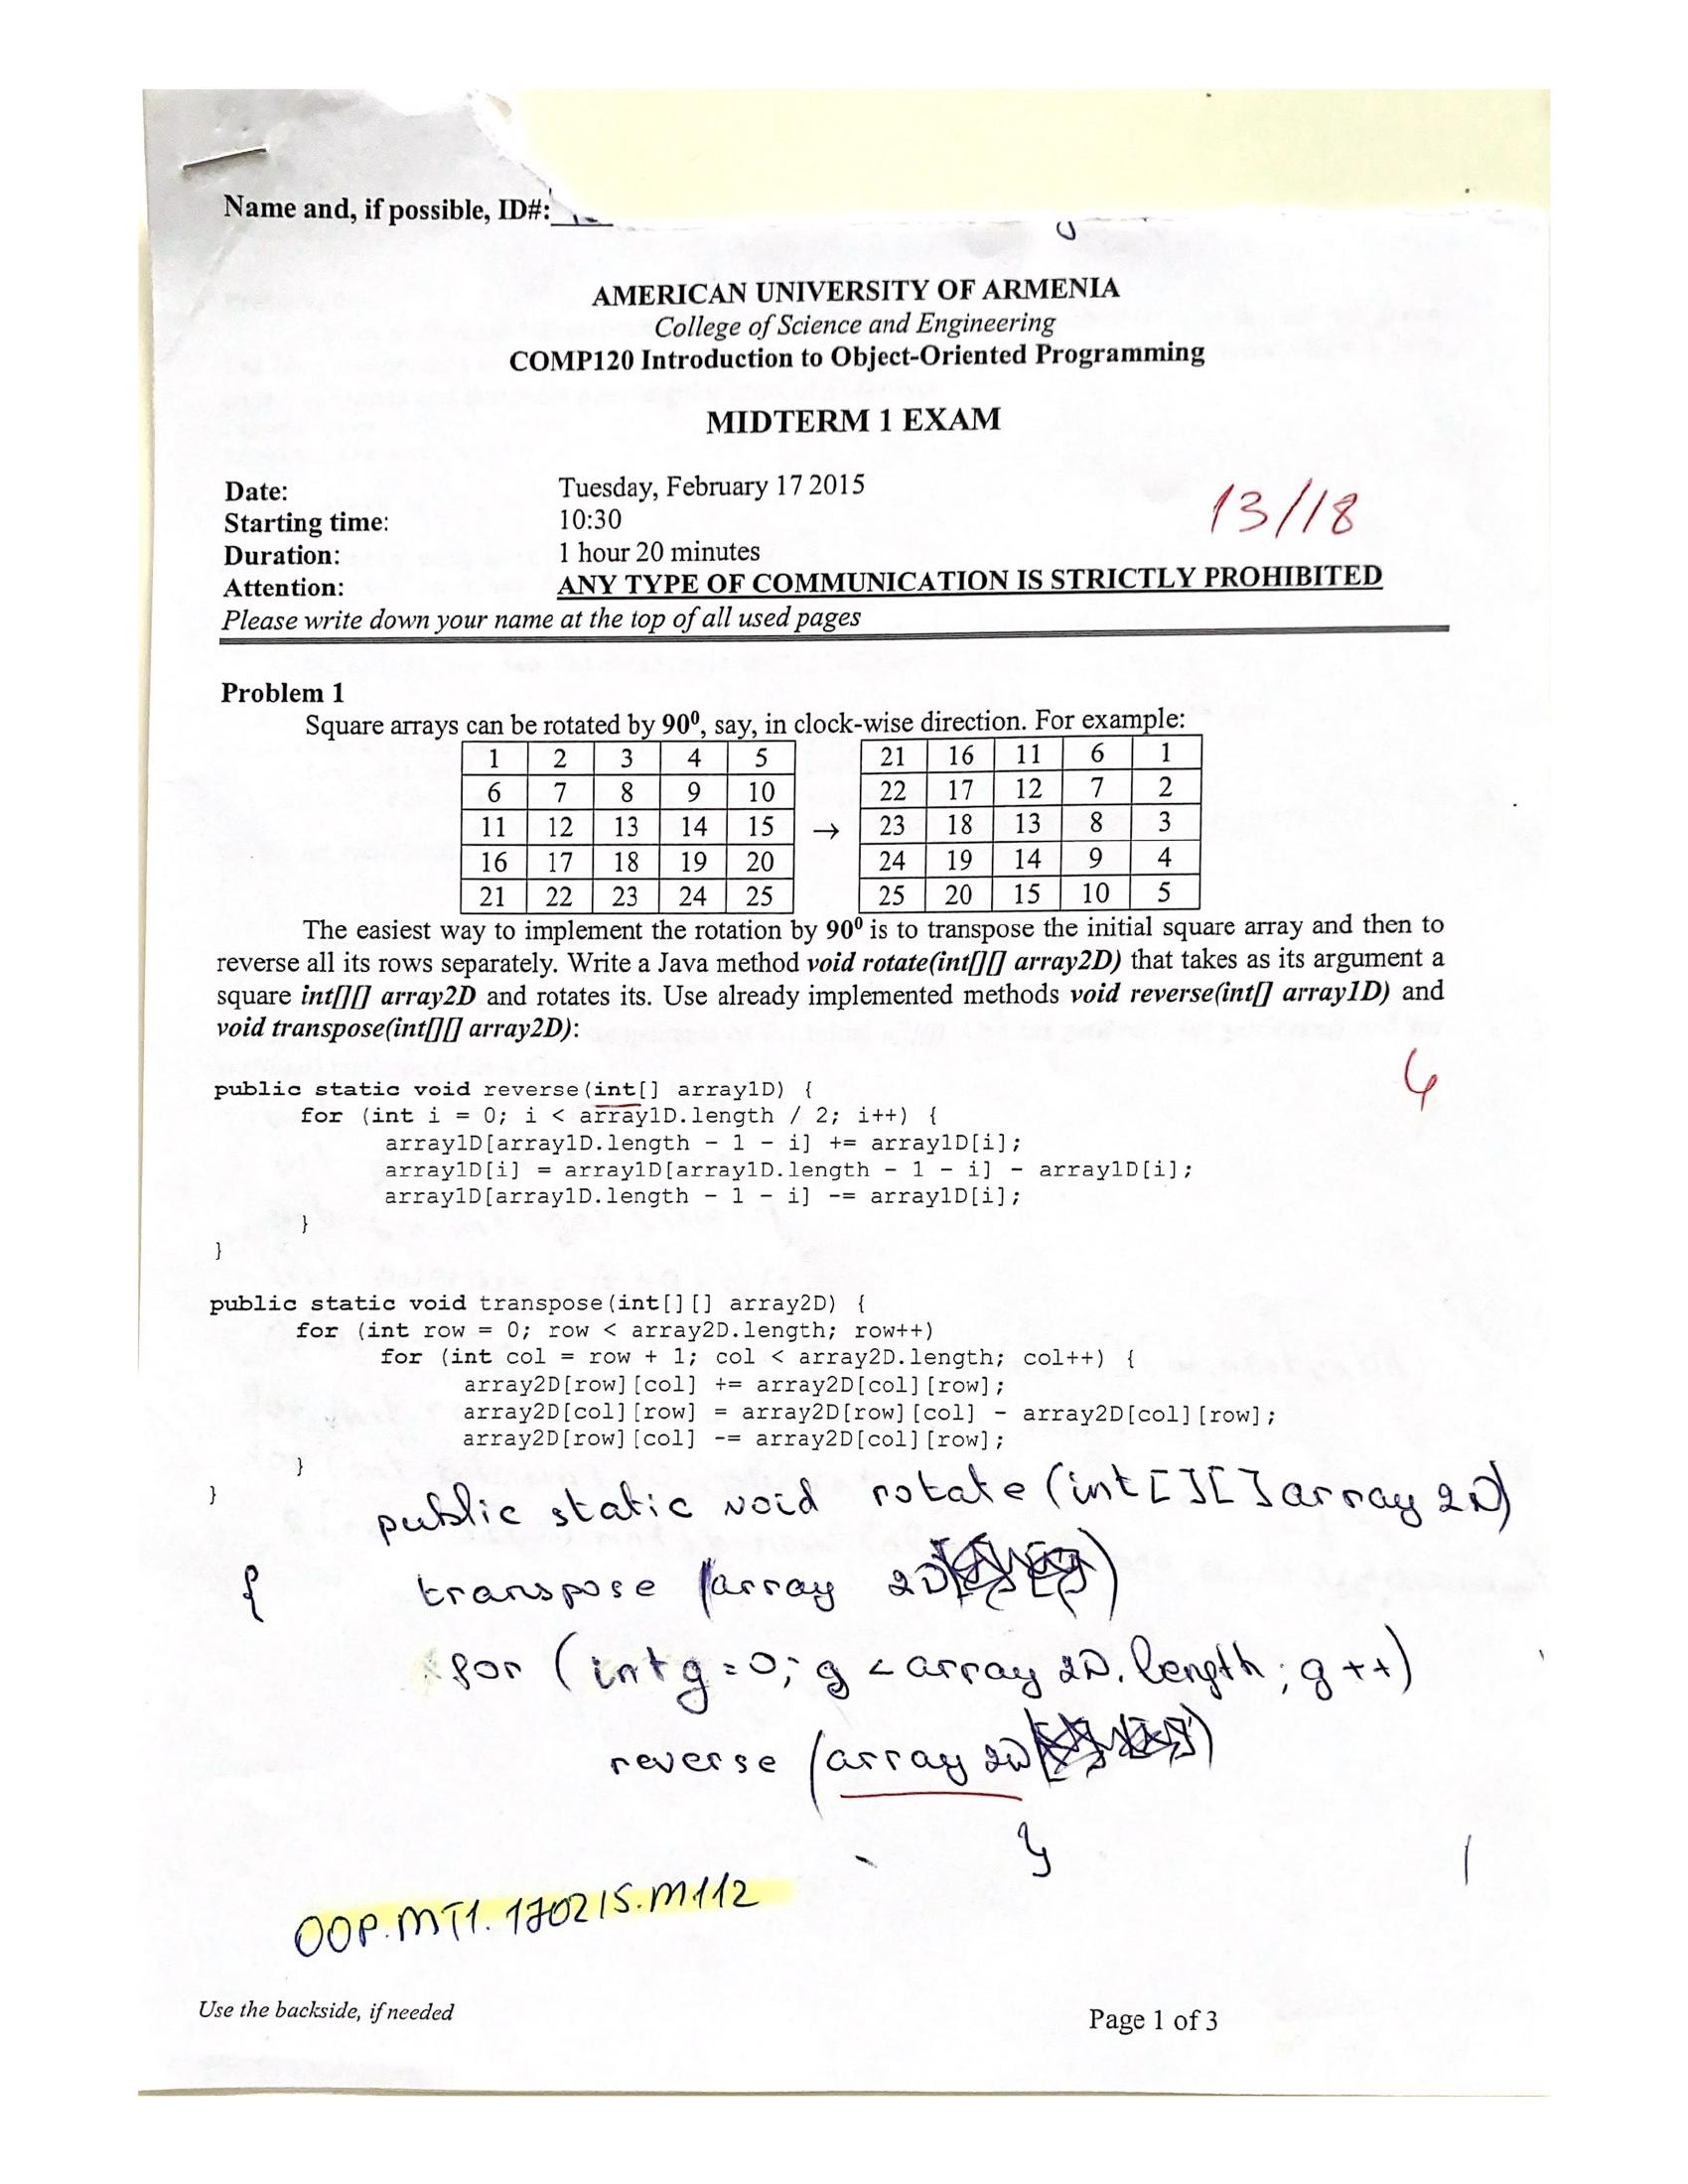 Name and, if possible, ID#:
AMERICAN UNIVERSITY OF ARMENIA
College of Science and Engineering
COMP120 Introduction to Object-Oriented Programming
MIDTERM 1 EXAM
Date: Tuesday, February 17 2015
Starting time: 10:30
13/18
Duration: 1 hour 20 minutes
Attention: ANY TYPE OF COMMUNICATION IS STRICTLY PROHIBITED
Please write down your name at the top of all used pages
Problem 1
Square arrays can be rotated by 90⁰, say, in clock-wise direction. For example:
1 2 3 4 5 21 16 11 6 1
6 7 8 9 10 22 17 12 7 2
11 12 13 14 15 → 23 18 13 8 3
16 17 18 19 20 24 19 14 9 4
21 22 23 24 25 25 20 15 10 5
The easiest way to implement the rotation by 90⁰ is to transpose the initial square array and then to
reverse all its rows separately. Write a Java method void rotate(int[][] array2D) that takes as its argument a
square int[][] array2D and rotates its. Use already implemented methods void reverse(int[] array1D) and
void transpose(int[][] array2D):
public static void reverse(int[] array1D) {
for (int i = 0; i < array1D.length / 2; i++) {
array1D[array1D.length - 1 - i] += array1D[i];
array1D[i] = array1D[array1D.length - 1 - i] - array1D[i];
array1D[array1D.length - 1 - i] -= array1D[i];
}
}
public static void transpose(int[][] array2D) {
for (int row = 0; row < array2D.length; row++)
for (int col = row + 1; col < array2D.length; col++) {
array2D[row][col] += array2D[col][row];
array2D[col][row] = array2D[row][col] - array2D[col][row];
array2D[row][col] -= array2D[col][row];
}
}
public static void rotate (int[][] array 2D)
{ transpose (array 2D)
for (int g = 0; g < array 2D. length; g ++)
reverse (array 2D)
}
OOP.MT1.170215.M112
Use the backside, if needed
Page 1 of 3